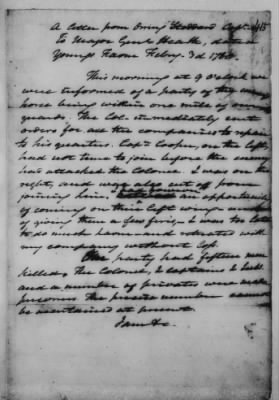 A letter from Oring Stoddard Capt.
To Major Genl Heath, dated
Youngs Farm Feby. 3d 1780.
This morning at 9 o'clock we
were informed of a party of the enemy
horse being within one mile of our
guards. The Col. immediately sent
orders for all the companies to repair
to his quarters. Capt Cooper, on the left,
had not time to join before the enemy
had attacked the Colonel. I was on the
right, and was also cut off from
joining him. an opportunity
of coming on their left wing and
of giving them a few fires. I was too late
to do much harm and retreated with
my company without loss.
Our party had fifteen men
killed. The Colonel, 2 captains 2 Lieut
and a number of privates were made
prisoners. The precise number cannot
be ascertained at present.
I am &c